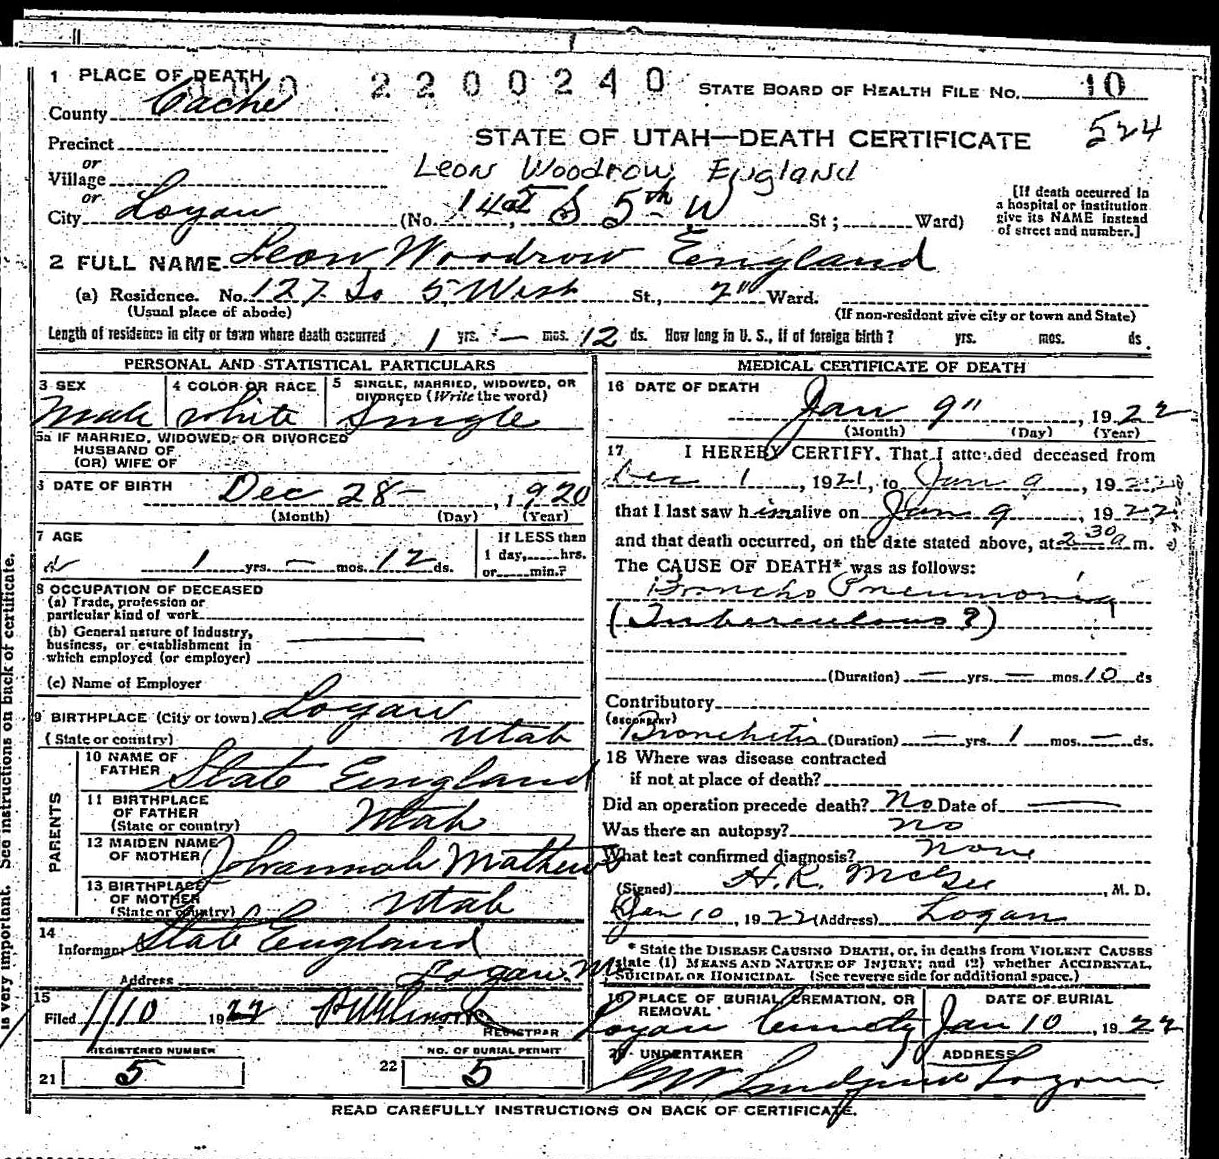 1 PLACE OF DEATH
2200240
STATE BOARD OF HEALTH FILE NO. 10
County Cache
524
STATE OF UTAH—DEATH CERTIFICATE
Precinct
or
Leon Woodrow England
Village
or
City Logan (No. S 5th W St; Ward)
[If death occurred in a hospital or institution give its NAME instead of street and number.]
2 FULL NAME Leon Woodrow England
(a) Residence. No. 127 So 5 West St., 2" Ward.
(Usual place of abode) (If non-resident give city or town and State)
Length of residence in city or town where death occurred 1 yrs. — mos. 12 ds. How long in U. S., if of foreign birth? yrs. mos. ds.
PERSONAL AND STATISTICAL PARTICULARS
3 SEX
Male
4 COLOR OR RACE
White
5 SINGLE, MARRIED, WIDOWED, OR DIVORCED (Write the word)
Single
5a IF MARRIED, WIDOWED, OR DIVORCED
HUSBAND OF
(OR) WIFE OF
6 DATE OF BIRTH Dec 28 - , 1920
(Month) (Day) (Year)
7 AGE
1 yrs. — mos. 12 ds.
If LESS then
1 day, hrs.
or min.?
8 OCCUPATION OF DECEASED
(a) Trade, profession or
particular kind of work
(b) General nature of industry,
business, or establishment in
which employed (or employer)
(c) Name of Employer
9 BIRTHPLACE (City or town) Logan
(State or country) Utah
PARENTS
10 NAME OF
FATHER State England
11 BIRTHPLACE
OF FATHER
(State or country) Utah
12 MAIDEN NAME
OF MOTHER Johannah Mathews
13 BIRTHPLACE
OF MOTHER
(State or country) Utah
14
Informant State England
Address Logan
15
Filed 1/10 1922
REGISTRAR
REGISTERED NUMBER
21 5
NO. OF BURIAL PERMIT
22 5
MEDICAL CERTIFICATE OF DEATH
16 DATE OF DEATH
Jan 9" , 1922
(Month) (Day) (Year)
17 I HEREBY CERTIFY, That I attended deceased from
Dec 1 , 1921, to Jan 9 , 1922
that I last saw him alive on Jan 9 , 1922
and that death occurred, on the date stated above, at 2 30 a m.
The CAUSE OF DEATH* was as follows:
Broncho Pneumonia
(Tuberculous?)
(Duration) — yrs. — mos. 10 ds
Contributory
(SECONDARY)
Bronchitis (Duration) — yrs. 1 mos. — ds.
18 Where was disease contracted
if not at place of death?
Did an operation precede death? No Date of —
Was there an autopsy? no
What test confirmed diagnosis? none
(Signed) H. R. McGee , M. D.
Jan 10 , 1922 (Address) Logan
* State the DISEASE CAUSING DEATH, or, in deaths from VIOLENT CAUSES
state (1) MEANS AND NATURE OF INJURY; and (2) whether ACCIDENTAL,
SUICIDAL OR HOMICIDAL (See reverse side for additional space.)
19 PLACE OF BURIAL, CREMATION, OR
REMOVAL
Logan Cemetery
DATE OF BURIAL
Jan 10 , 1922
20 UNDERTAKER
ADDRESS
Logan
READ CAREFULLY INSTRUCTIONS ON BACK OF CERTIFICATE.
is very important. See instructions on back of certificate.